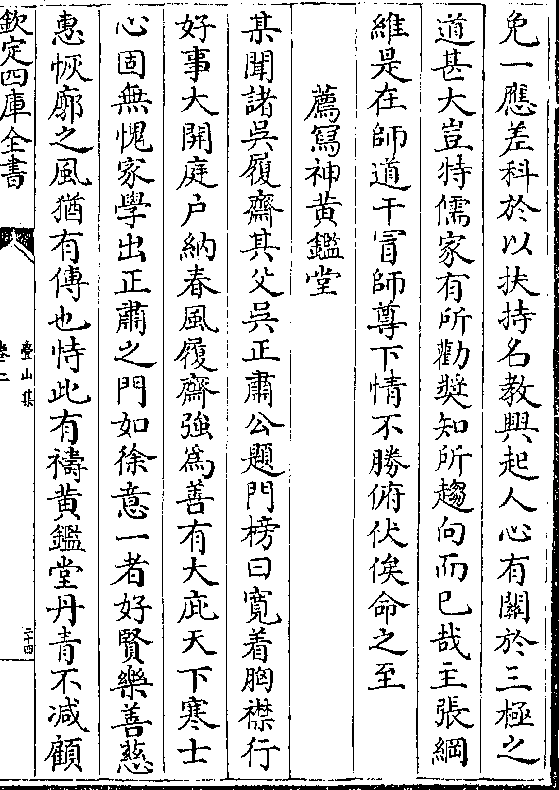 免一應差科於以扶持名教興起人心有關於三極之
道甚大豈特儒家有所勸奨知所趨向而已哉主張綱
維是在師道干冒師尊下情不勝俯伏俟命之至
薦冩神黄鑑堂
某聞諸吳履齋其父吳正肅公題門榜曰寛着胸襟行
好事大開庭户納春風履齋強為善有大庇天下寒士
心固無愧家學出正肅之門如徐意一者好賢樂善慈
惠恢廓之風猶有傳也恃此有禱黄鑑堂丹青不减顧
欽定四庫全書
疊山集
卷二
二十四